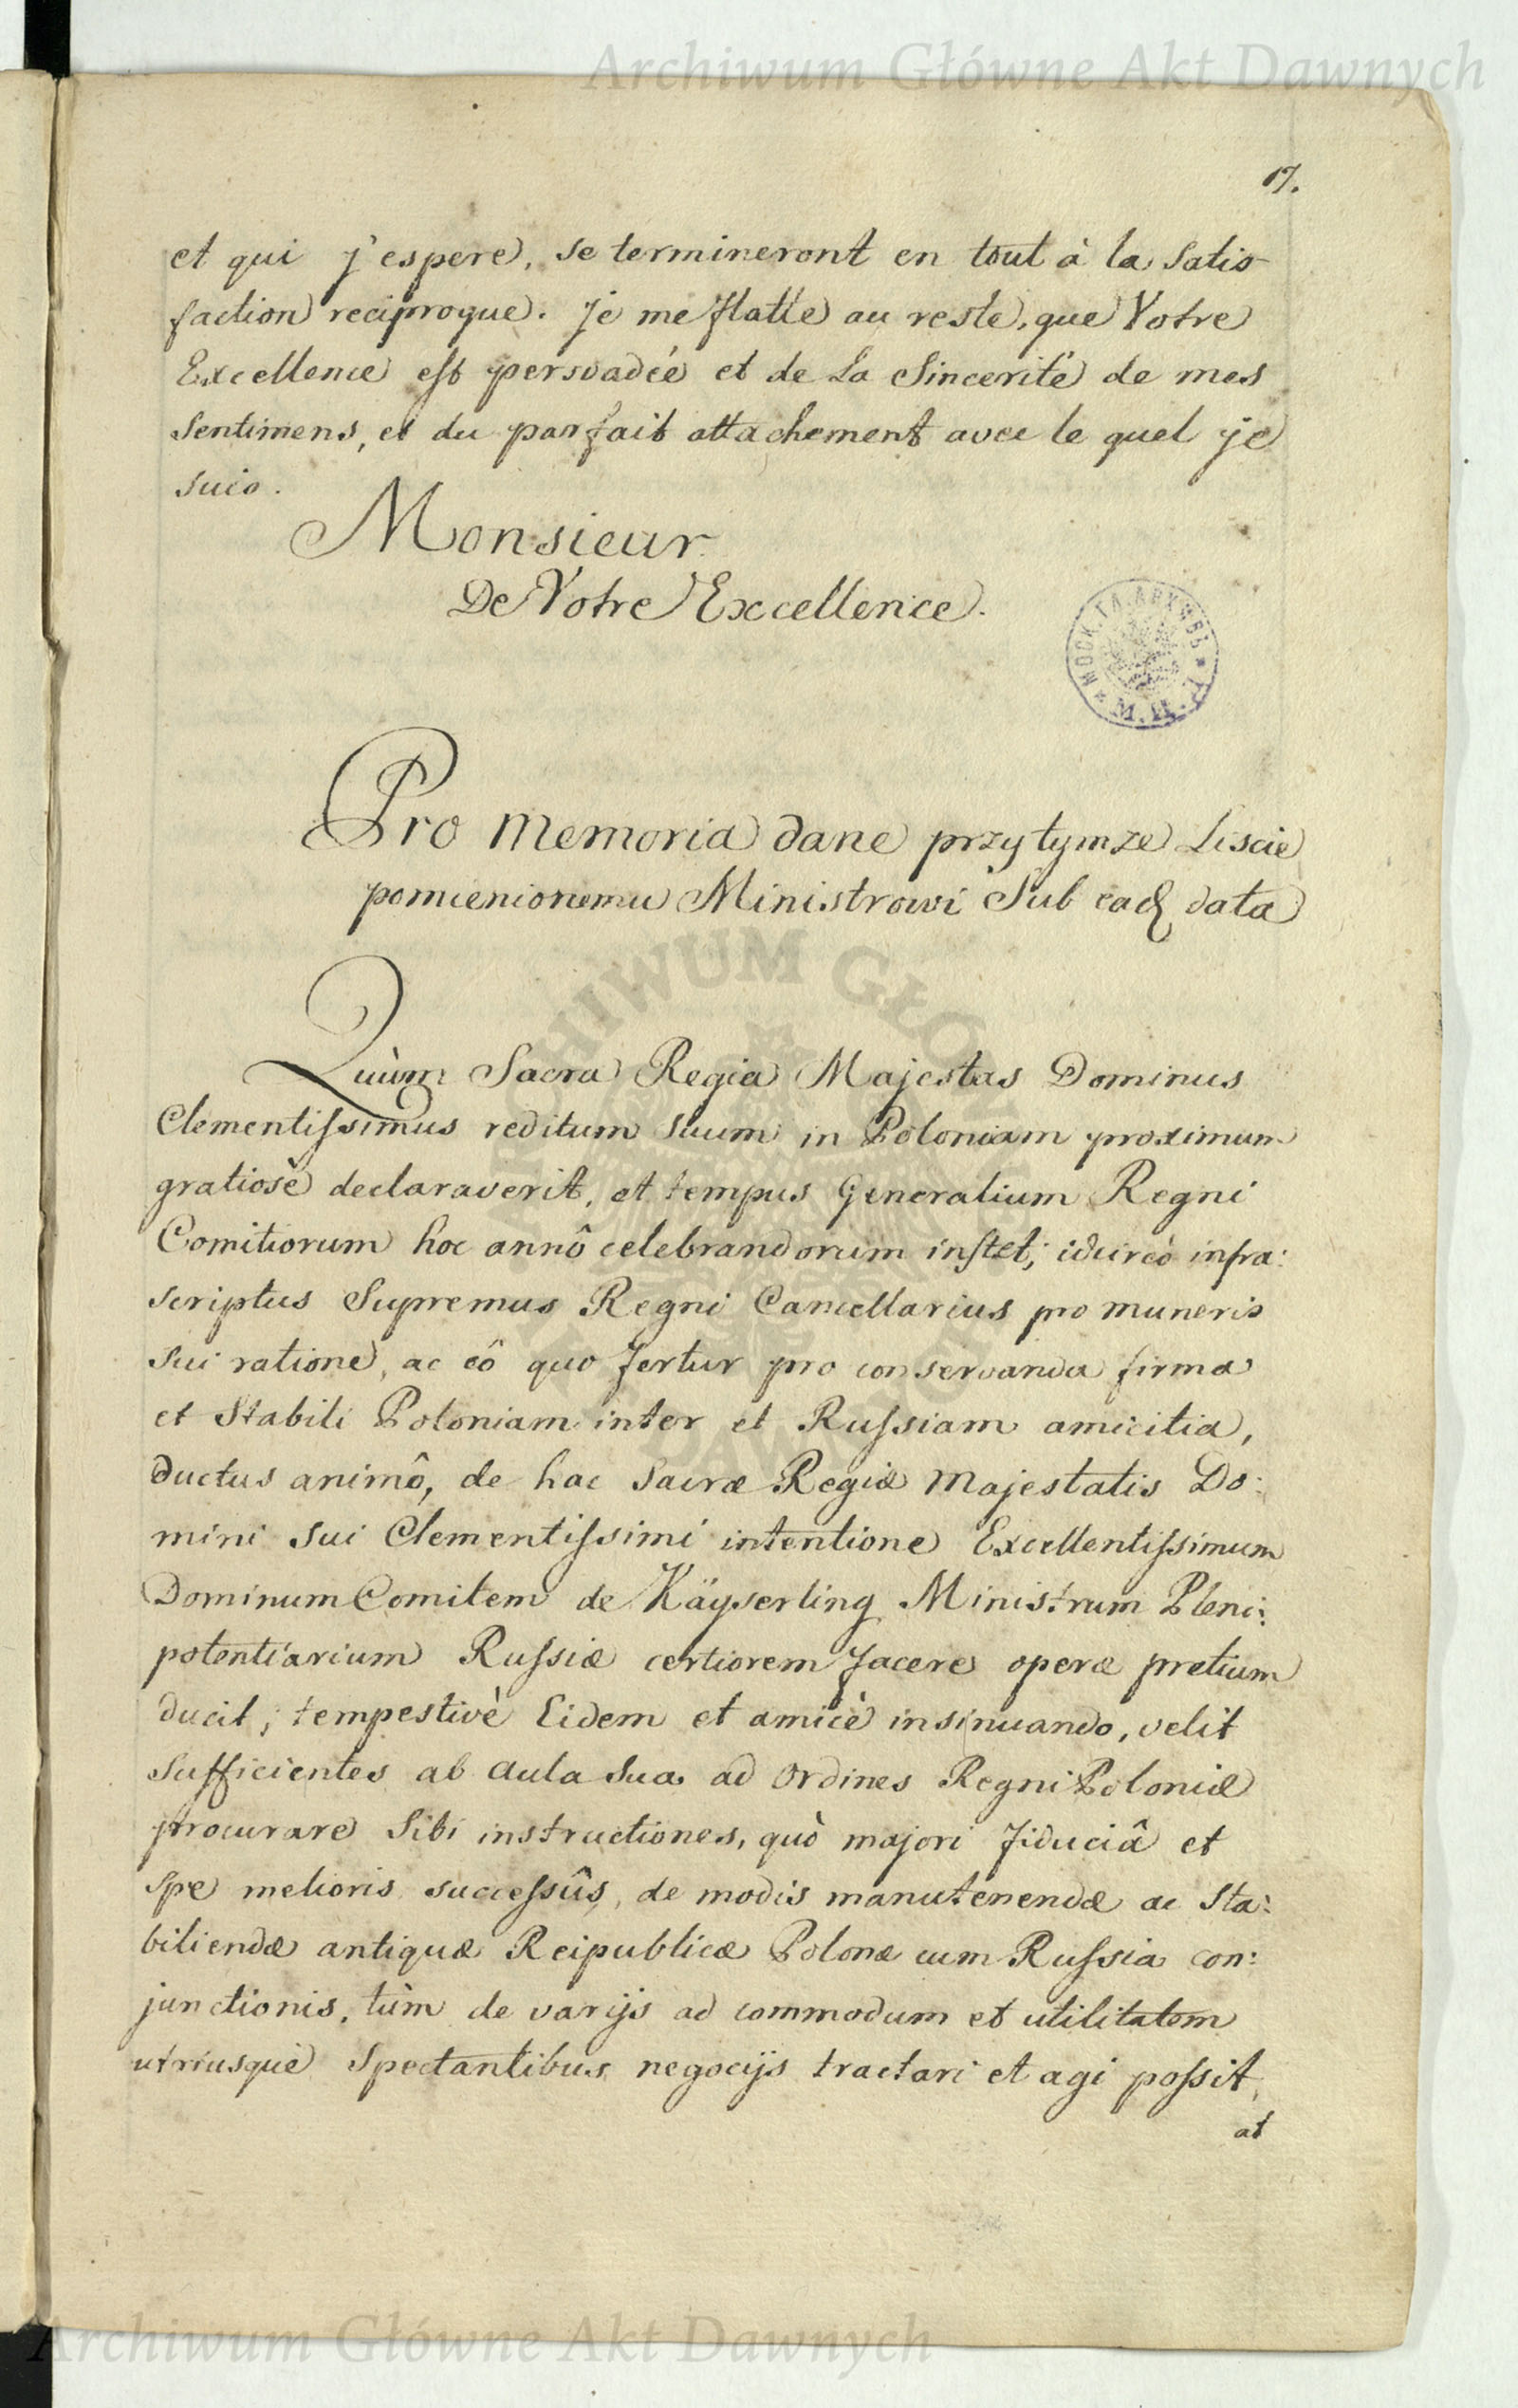 Archiwum Główne Akt Dawnych
17.
et qui j'espere, se termineront en tout à la satis
faction reciproque. Je me flatte au reste, que Votre
Excellence est persvadée et de La Sincerité de mes
Sentimens, et du parfait attachement avec le quel je
suis.
Monsieur
De Votre Excellence.
МОСК. ГЛ. АРХИВЪ
М. И. Д.
Pro Memoria dane przytymze Liscie
pomienionemu Ministrowi Sub ead data
Quùm Sacra Regia Majestas Dominus
Clementissimus reditum suum in Poloniam proximum
gratiosè declaraverit, et tempus Generalium Regni
Comitiorum hoc annô celebrandorum instet; idcircò infra:
scriptus Supremus Regni Cancellarius pro muneris
sui ratione, ac eô quo fertur pro conservanda firma
et Stabili Poloniam inter et Russiam amicitia,
ductus animô, de hac Sacræ Regiæ Majestatis Do:
mini Sui Clementissimi intentione Excellentissimum
Dominum Comitem de Käyserling Ministrum Pleni:
potentiarium Russiæ certiorem facere operæ pretium
ducit; tempestivè Eidem et amicè insinuando, velit
Sufficientes ab Aula Sua ad Ordines Regni Poloniæ
procurare Sibi instructiones, quò majori fiduciâ et
spe melioris successûs, de modis manutenendæ ac sta:
biliendæ antiquæ Reipublicæ Polonæ cum Russia con:
junctionis, tùm de varijs ad commodum et utilitatem
utriusque Spectantibus negocijs tractari et agi possit,
at
Archiwum Główne Akt Dawnych